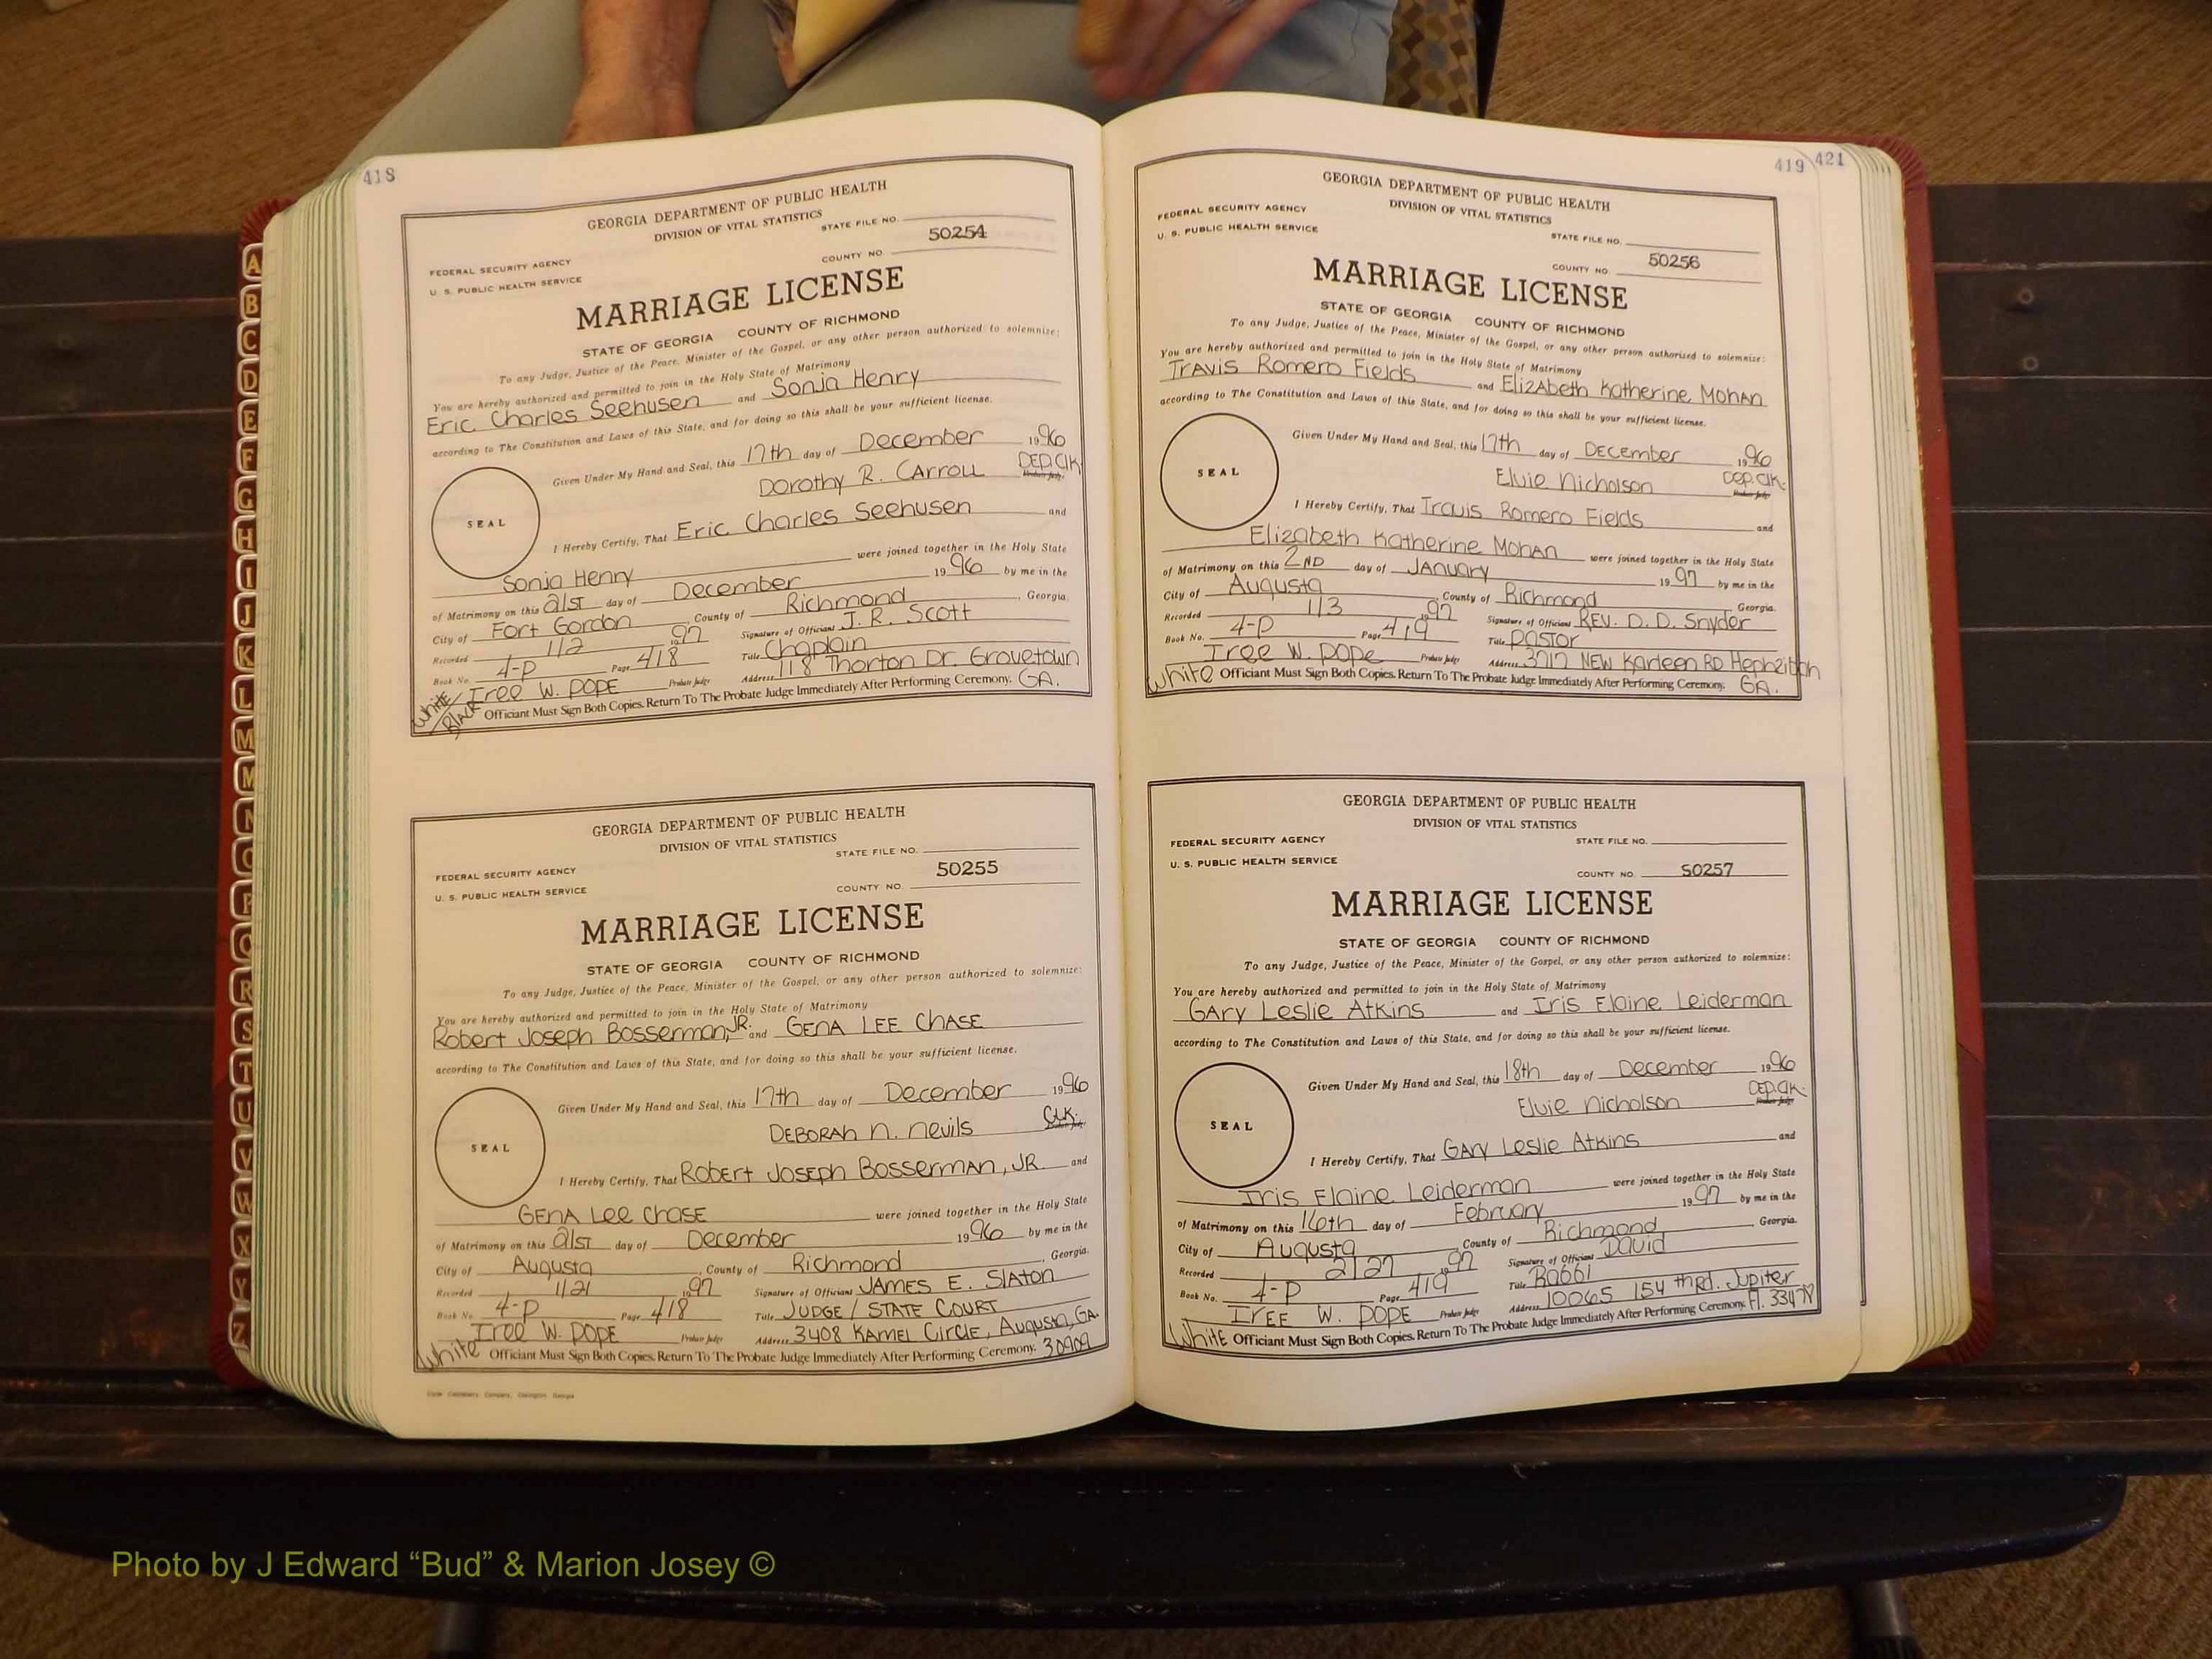 418
GEORGIA DEPARTMENT OF PUBLIC HEALTH
DIVISION OF VITAL STATISTICS
STATE FILE NO.
FEDERAL SECURITY AGENCY
50254
U. S. PUBLIC HEALTH SERVICE
COUNTY NO
MARRIAGE LICENSE
STATE OF GEORGIA COUNTY OF RICHMOND
To any Judge, Justice of the Peace, Minister of the Gospel, or any other person authorized to solemnize:
You are hereby authorized and permitted to join in the Holy State of Matrimony
Eric Charles Seehusen and Sonja Henry
according to The Constitution and Laws of this State, and for doing so this shall be your sufficient license.
Given Under My Hand and Seal, this 17th day of December 1996
Dorothy R. CARROLL DEP. Clk
SEAL
I Hereby Certify, That Eric Charles Seehusen and
Sonja Henry were joined together in the Holy State
of Matrimony on this 21st day of December 1996 by me in the
City of Fort Gordon County of Richmond, Georgia.
Recorded 1/2 1997 Signature of Officiant J. R. Scott
Book No. 4-P Page 418 Title Chaplain
Iree W. POPE Probate Judge Address 118 Thorton Dr. Grovetown
White/Black Officiant Must Sign Both Copies. Return To The Probate Judge Immediately After Performing Ceremony. GA.
GEORGIA DEPARTMENT OF PUBLIC HEALTH
DIVISION OF VITAL STATISTICS
STATE FILE NO.
FEDERAL SECURITY AGENCY
50255
U. S. PUBLIC HEALTH SERVICE
COUNTY NO.
MARRIAGE LICENSE
STATE OF GEORGIA COUNTY OF RICHMOND
To any Judge, Justice of the Peace, Minister of the Gospel, or any other person authorized to solemnize:
You are hereby authorized and permitted to join in the Holy State of Matrimony
Robert Joseph Bosserman, JR. and GENA LEE CHASE
according to The Constitution and Laws of this State, and for doing so this shall be your sufficient license.
Given Under My Hand and Seal, this 17th day of December 1996
DEBORAH N. Nevils Clk.
SEAL
I Hereby Certify, That Robert Joseph Bosserman, JR and
GENA Lee CHASE were joined together in the Holy State
of Matrimony on this 21st day of December 1996 by me in the
City of Augusta, County of Richmond, Georgia.
Recorded 1/21 1997 Signature of Officiant JAMES E. SlAton
Book No 4-P Page 418 Title JUDGE / STATE COURT
Iree W. POPE Probate Judge Address 3408 KAMEL CIRCLE, Augusta, GA.
White Officiant Must Sign Both Copies. Return To The Probate Judge Immediately After Performing Ceremony. 30909
419 421
GEORGIA DEPARTMENT OF PUBLIC HEALTH
DIVISION OF VITAL STATISTICS
FEDERAL SECURITY AGENCY
STATE FILE NO.
U. S. PUBLIC HEALTH SERVICE
COUNTY NO. 50256
MARRIAGE LICENSE
STATE OF GEORGIA COUNTY OF RICHMOND
To any Judge, Justice of the Peace, Minister of the Gospel, or any other person authorized to solemnize:
You are hereby authorized and permitted to join in the Holy State of Matrimony
Travis Romero Fields and Elizabeth Katherine Mohan
according to The Constitution and Laws of this State, and for doing so this shall be your sufficient license.
Given Under My Hand and Seal, this 17th day of December 1996
Elvie Nicholson Dep. Clk.
SEAL
I Hereby Certify, That Travis Romero Fields and
Elizabeth Katherine Mohan were joined together in the Holy State
of Matrimony on this 2ND day of January 1997 by me in the
City of Augusta, County of Richmond Georgia.
Recorded 1/3 1997 Signature of Officiant REV. D. D. Snyder
Book No. 4-P Page 419 Title Pastor
Iree W. Pope Probate Judge Address 3717 NEW Karleen RD Hephzibah
White Officiant Must Sign Both Copies. Return To The Probate Judge Immediately After Performing Ceremony. GA.
GEORGIA DEPARTMENT OF PUBLIC HEALTH
DIVISION OF VITAL STATISTICS
FEDERAL SECURITY AGENCY
STATE FILE NO.
U. S. PUBLIC HEALTH SERVICE
COUNTY NO. 50257
MARRIAGE LICENSE
STATE OF GEORGIA COUNTY OF RICHMOND
To any Judge, Justice of the Peace, Minister of the Gospel, or any other person authorized to solemnize:
You are hereby authorized and permitted to join in the Holy State of Matrimony
GAry Leslie Atkins and Iris Elaine Leiderman
according to The Constitution and Laws of this State, and for doing so this shall be your sufficient license.
Given Under My Hand and Seal, this 18th day of December 1996
Elvie Nicholson DEP. Clk.
SEAL
I Hereby Certify, That GAry Leslie Atkins and
Iris Elaine Leiderman were joined together in the Holy State
of Matrimony on this 16th day of February 1997 by me in the
City of Augusta, County of Richmond Georgia.
Recorded 2/27 1997 Signature of Officiant David
Book No. 4-P Page 419 Title Rabbi
IREE W. POPE Probate Judge Address 10065 154th Rd. Jupiter
White Officiant Must Sign Both Copies. Return To The Probate Judge Immediately After Performing Ceremony. Fl. 33478
A
B
C
D
E
F
G
H
I
J
K
L
M
M
N
O
P
Q
R
S
T
U
V
W
X
Y
Z
Photo by J Edward “Bud” & Marion Josey ©